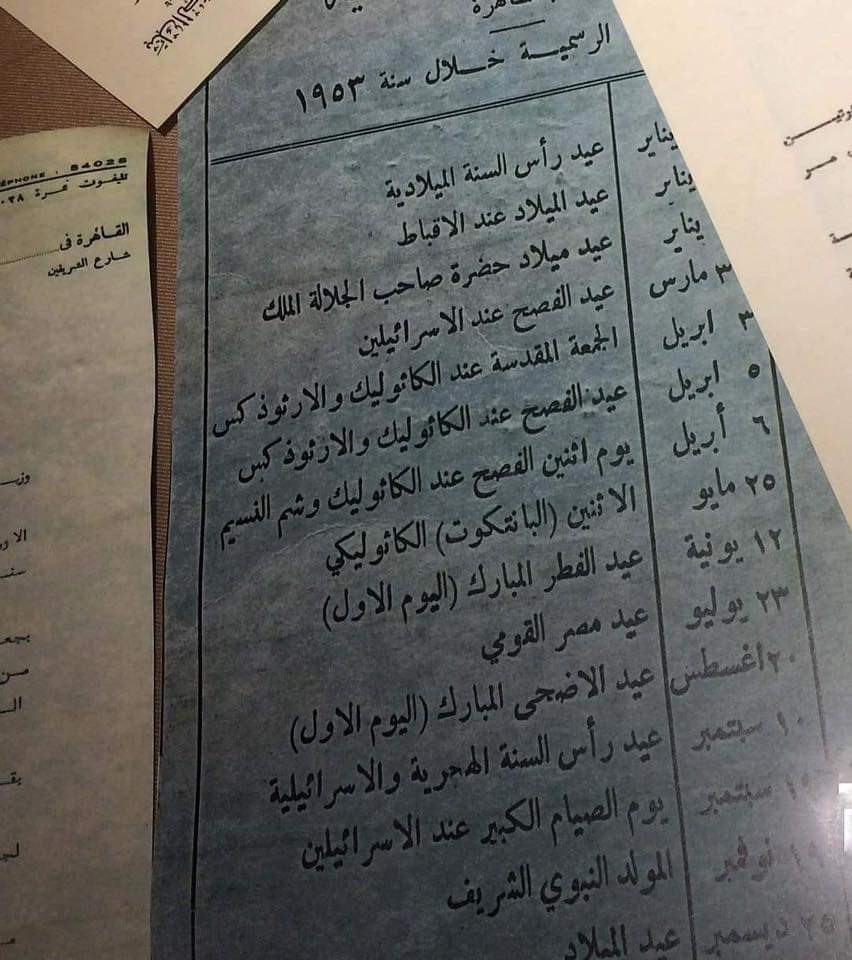 القاهرة
الرسمية خلال سنة ١٩٥٣
يناير عيد رأس السنة الميلادية
يناير عيد الميلاد عند الاقباط
يناير عيد ميلاد حضرة صاحب الجلالة الملك
مارس عيد الفصح عند الاسرائيلين
٣ ابريل الجمعة المقدسة عند الكاثوليك والارثوذكس
٥ ابريل عيد الفصح عند الكاثوليك والارثوذكس
٦ أبريل يوم اثنين الفصح عند الكاثوليك وشم النسيم
٢٥ مايو الاثنين (البانتكوت) الكاثوليكي
١٢ يونية عيد الفطر المبارك (اليوم الاول)
٢٣ يوليو عيد مصر القومي
٢٠ اغسطس عيد الاضحى المبارك (اليوم الاول)
١٠ سبتمبر عيد رأس السنة الهجرية والاسرائيلية
سبتمبر يوم الصيام الكبير عند الاسرائيلين
نوفمبر المولد النبوي الشريف
٢٥ ديسمبر عيد الميلاد
TELEPHONE : 54028
تليفون نمرة
القاهرة فى
شارع الشريفين